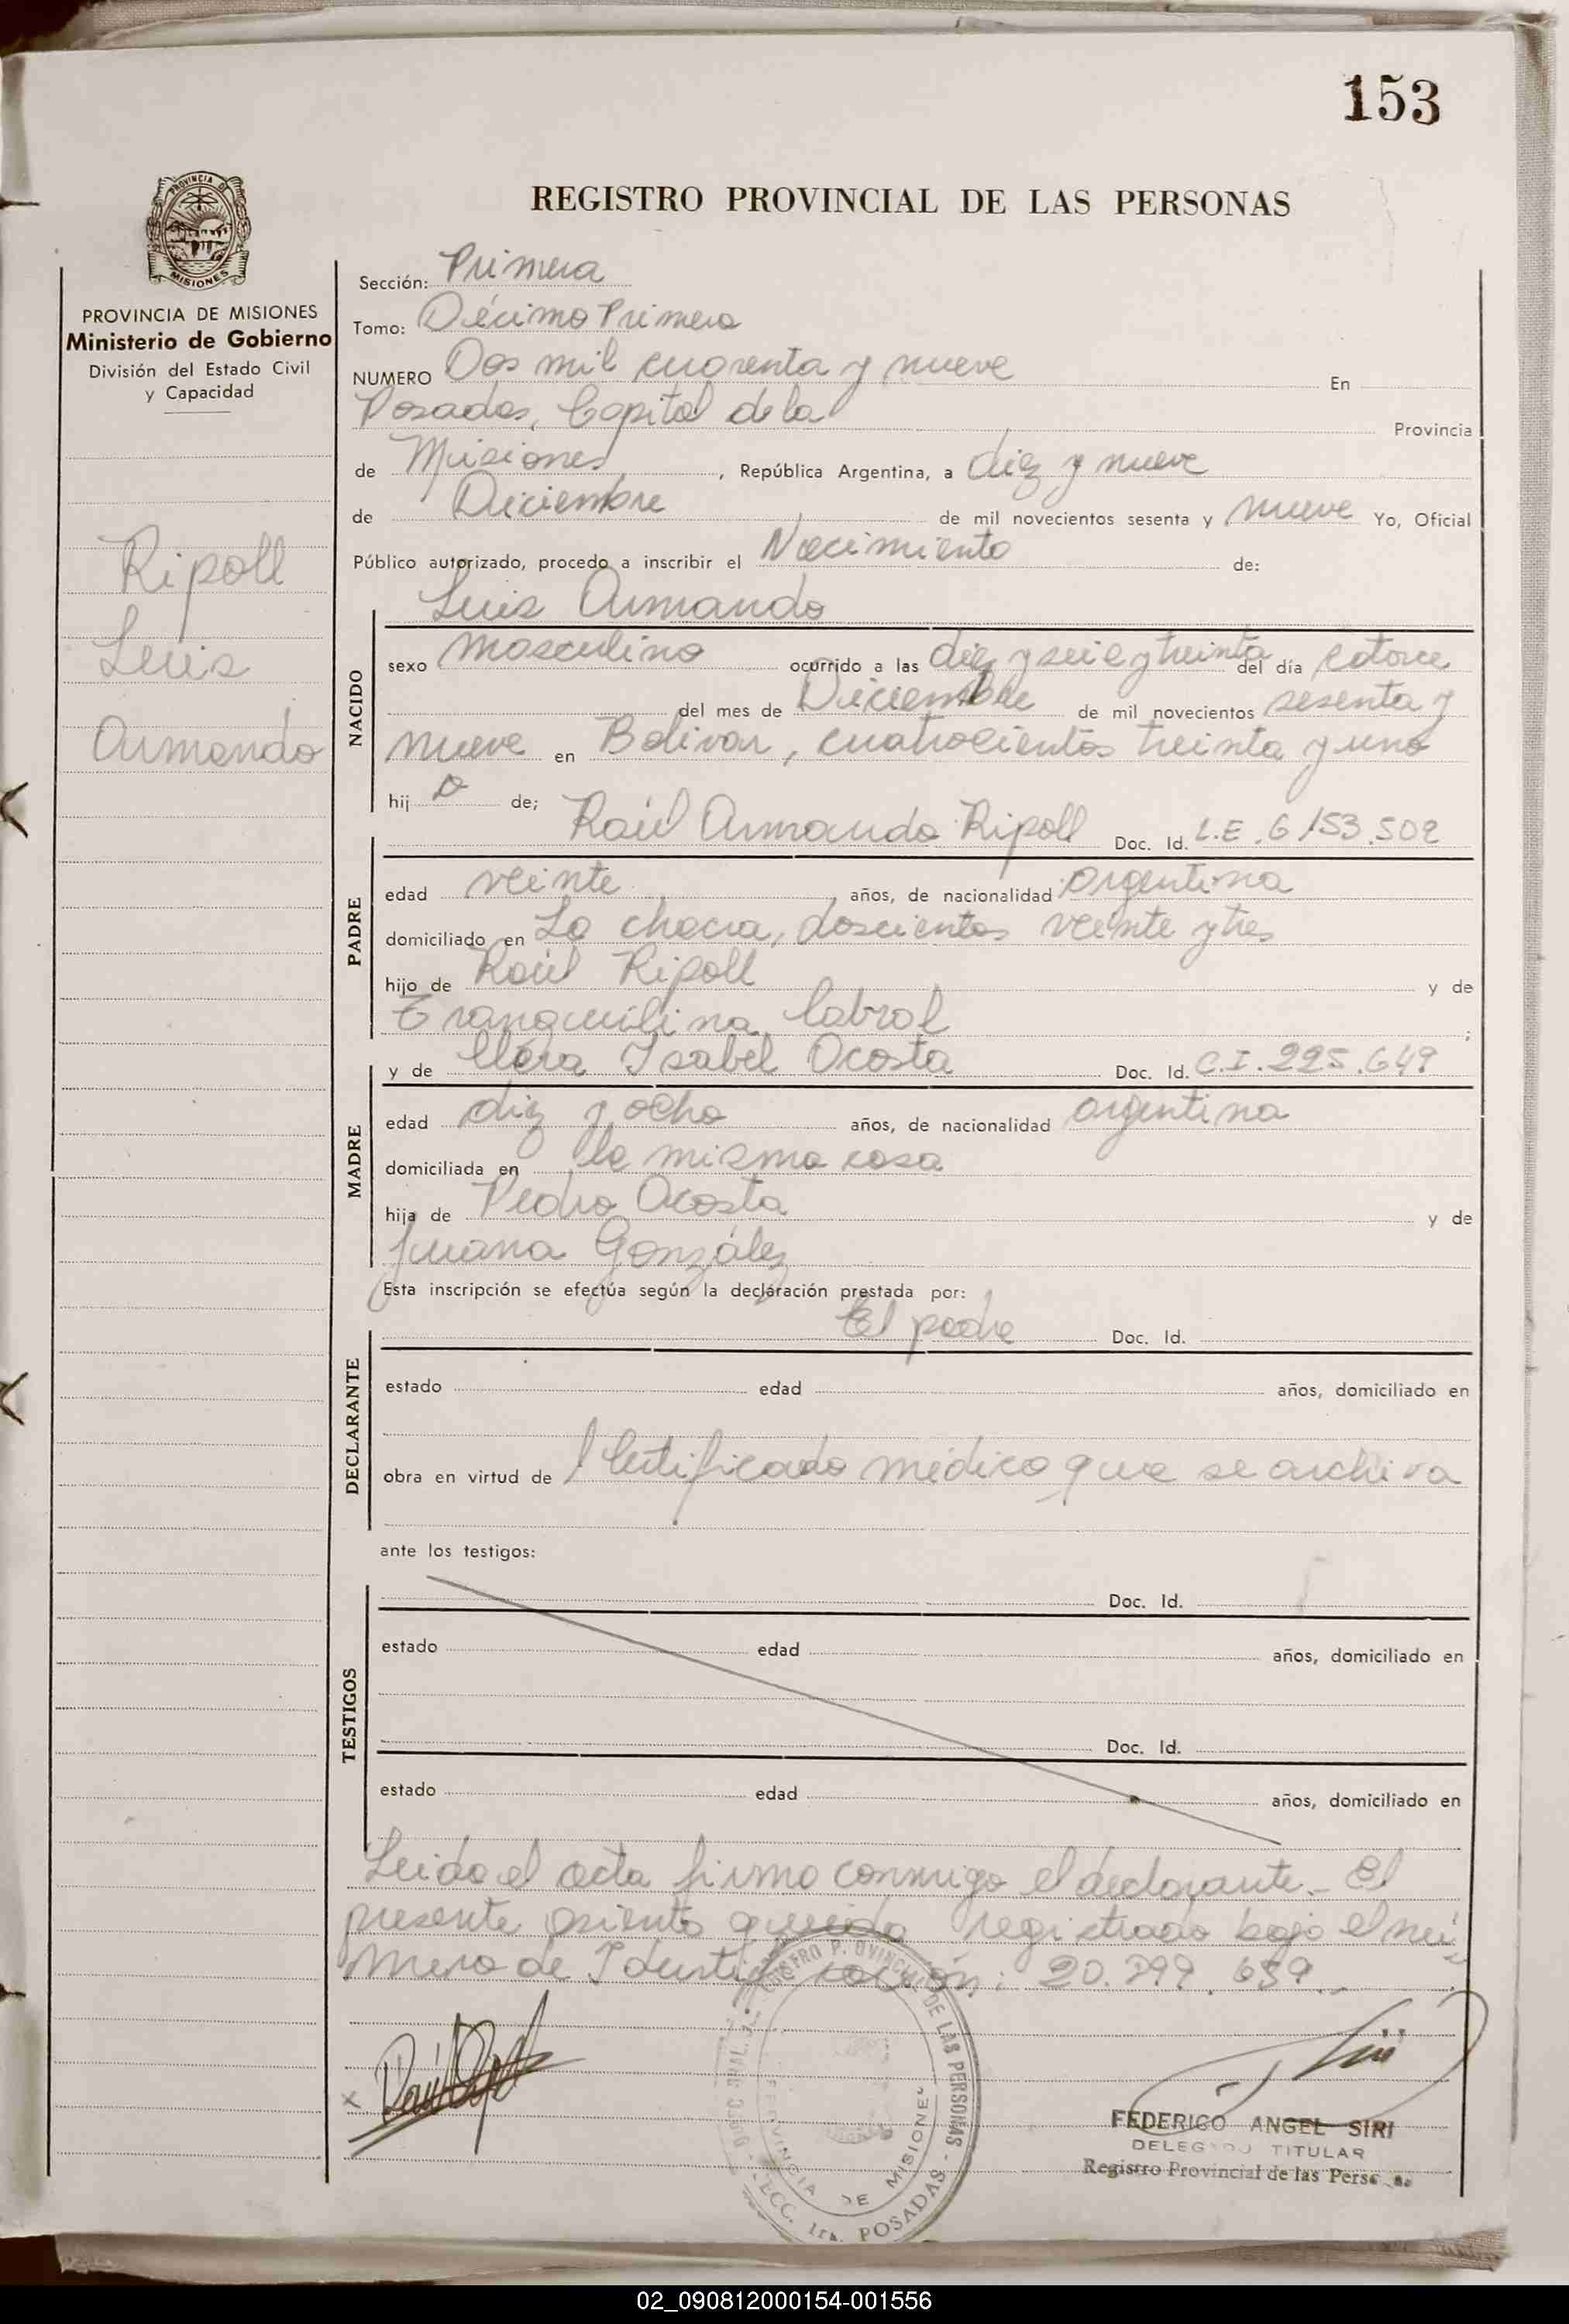 153
PROVINCIA DE
MISIONES
REGISTRO PROVINCIAL DE LAS PERSONAS
PROVINCIA DE MISIONES
Ministerio de Gobierno
División del Estado Civil
y Capacidad
Ripoll
Luis
Armando
Sección: Primera
Tomo: Décimo Primero
NUMERO Dos mil cuarenta y nueve En
Posadas, Capital de la Provincia
de Misiones, República Argentina, a diez y nueve
de Diciembre de mil novecientos sesenta y nueve Yo, Oficial
Público autorizado, procedo a inscribir el Nacimiento de:
Luis Armando
NACIDO
sexo masculino ocurrido a las diez y seis y treinta del día catorce
del mes de Diciembre de mil novecientos sesenta y
nueve en Bolivar, cuatrocientos treinta y uno
hij o de;
Raúl Armando Ripoll Doc. Id. L.E. 6153.502
PADRE
edad veinte años, de nacionalidad argentina
domiciliado en La chacra, doscientos veinte y tres
hijo de Raúl Ripoll y de
Tranquilina Cabral ;
y de Clara Isabel Acosta Doc. Id. C.I. 225.649
MADRE
edad diez y ocho años, de nacionalidad argentina
domiciliada en la misma casa
hija de Pedro Acosta y de
Juana González
Esta inscripción se efectúa según la declaración prestada por:
El padre Doc. Id.
DECLARANTE
estado edad años, domiciliado en
obra en virtud de Certificado médico que se archiva
ante los testigos:
Doc. Id.
TESTIGOS
estado edad años, domiciliado en
Doc. Id.
estado edad años, domiciliado en
Leido el acta firma conmigo el declarante.- El
presente asiento queda registrado bajo el nú
mero de Identificación: 20.799.659.
DE LAS PERSONAS
PROVINCIA DE MISIONES
POSADAS
FEDERICO ANGEL SIRI
TITULAR
Registro Provincial de las
02_090812000154-001556